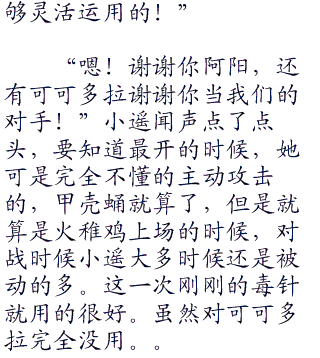 够灵活运用的！”
“嗯！谢谢你阿阳，还
有可可多拉谢谢你当我们的
对手！”小遥闻声点了点
头，要知道最开的时候，她
可是完全不懂的主动攻击
的，甲壳蛹就算了，但是就
算是火稚鸡上场的时候，对
战时候小遥大多时候还是被
动的多。这一次刚刚的毒针
就用的很好。虽然对可可多
拉完全没用。。